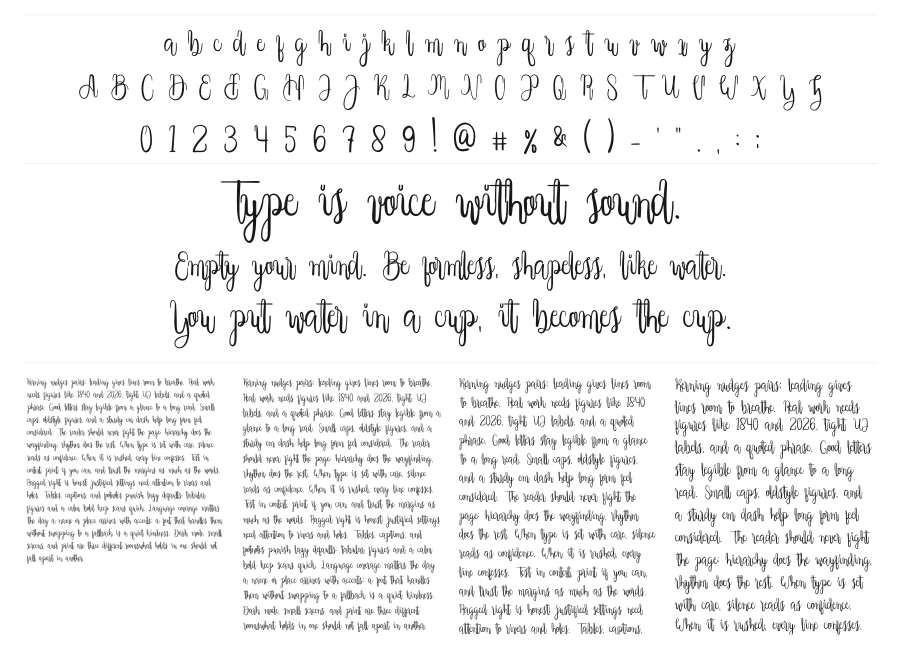 a b c d e f g h i j k l m n o p q r s t u v w x y z
A B C D E F G H I J K L M N O P Q R S T U V W X Y Z
0 1 2 3 4 5 6 7 8 9 ! @ # % & ( ) - ' " . , : ;
Type is voice without sound.
Empty your mind. Be formless, shapeless, like water.
You put water in a cup, it becomes the cup.
Kerning nudges pairs; leading gives lines room to breathe. Real work
needs figures like 1840 and 2026, tight UI labels, and a quoted
phrase. Good letters stay legible from a glance to a long read. Small
caps, oldstyle figures, and a sturdy em dash help long form feel
considered. The reader should never fight the page; hierarchy does the
wayfinding, rhythm does the rest. When type is set with care, silence
reads as confidence. When it is rushed, every line confesses. Test in
context, print if you can, and trust the margins as much as the words.
Ragged right is honest; justified settings need attention to rivers and
holes. Tables, captions, and footnotes punish lazy defaults; tabular
figures and a calm bold keep scans quick. Language coverage matters
the day a name or place arrives with accents; a font that handles them
without swapping to a fallback is a quiet kindness. Dark mode, small
screens, and print are three different rooms; what holds in one should not
fall apart in another.
Kerning nudges pairs; leading gives lines room to breathe.
Real work needs figures like 1840 and 2026, tight UI
labels, and a quoted phrase. Good letters stay legible from a
glance to a long read. Small caps, oldstyle figures, and a
sturdy em dash help long form feel considered. The reader
should never fight the page; hierarchy does the wayfinding,
rhythm does the rest. When type is set with care, silence
reads as confidence. When it is rushed, every line confesses.
Test in context, print if you can, and trust the margins as
much as the words. Ragged right is honest; justified settings
need attention to rivers and holes. Tables, captions, and
footnotes punish lazy defaults; tabular figures and a calm
bold keep scans quick. Language coverage matters the day
a name or place arrives with accents; a font that handles
them without swapping to a fallback is a quiet kindness.
Dark mode, small screens, and print are three different
rooms; what holds in one should not fall apart in another.
Kerning nudges pairs; leading gives lines room
to breathe. Real work needs figures like 1840
and 2026, tight UI labels, and a quoted
phrase. Good letters stay legible from a glance
to a long read. Small caps, oldstyle figures,
and a sturdy em dash help long form feel
considered. The reader should never fight the
page; hierarchy does the wayfinding, rhythm
does the rest. When type is set with care, silence
reads as confidence. When it is rushed, every
line confesses. Test in context, print if you can,
and trust the margins as much as the words.
Ragged right is honest; justified settings need
attention to rivers and holes. Tables, captions,
Kerning nudges pairs; leading gives
lines room to breathe. Real work needs
figures like 1840 and 2026, tight UI
labels, and a quoted phrase. Good letters
stay legible from a glance to a long
read. Small caps, oldstyle figures, and
a sturdy em dash help long form feel
considered. The reader should never fight
the page; hierarchy does the wayfinding,
rhythm does the rest. When type is set
with care, silence reads as confidence.
When it is rushed, every line confesses.